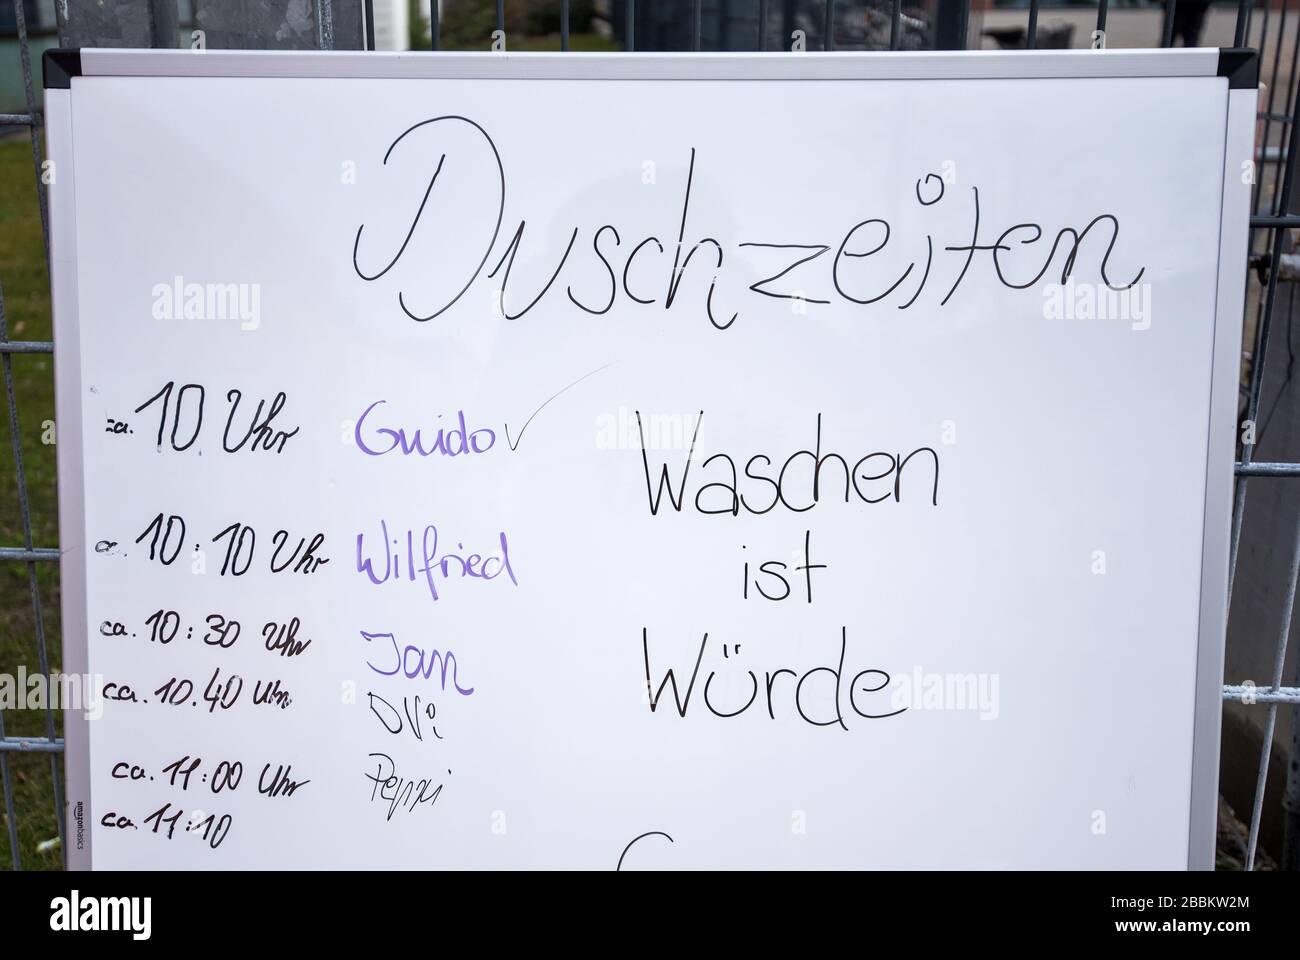 Duschzeiten
ca. 10 Uhr Guido ✓
ca. 10:10 Uhr Wilfried
ca. 10:30 Uhr Jan
ca. 10.40 Uhr
ca. 11:00 Uhr
ca. 11:10
Waschen
ist
Würde
amazonbasics
alamy
Image ID: 2BBKW2M
www.alamy.com